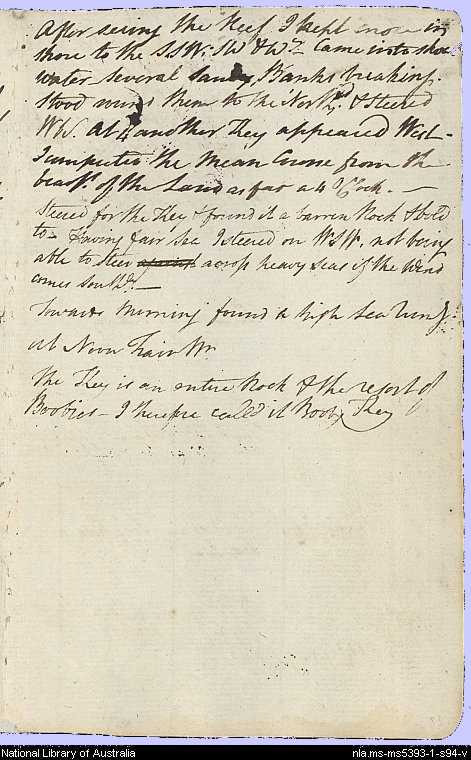 After seeing the Reef I kept more in
shore to the S.S.W. SW & W. Came into shoal
water several Sandy Banks breaking.
Stood round them to the North.d & steered
WbS. at 4 another Key appeared West -
I computed the mean Course from the
bear.gs of the Land as far as 4 o Clock. —
Steered for the Key & found it a barren Rock & bold
to - having fair Sea I steered on WSW. not being
able to steer against across heavy seas if the Wind
comes South.d —
Towards Morning found a high Sea run.g.
at Noon Fair Wr
The Key is an entire Rock & the resort of
Boobies - I therefore called it Booby Key
National Library of Australia
nla.ms-ms5393-1-s94-v